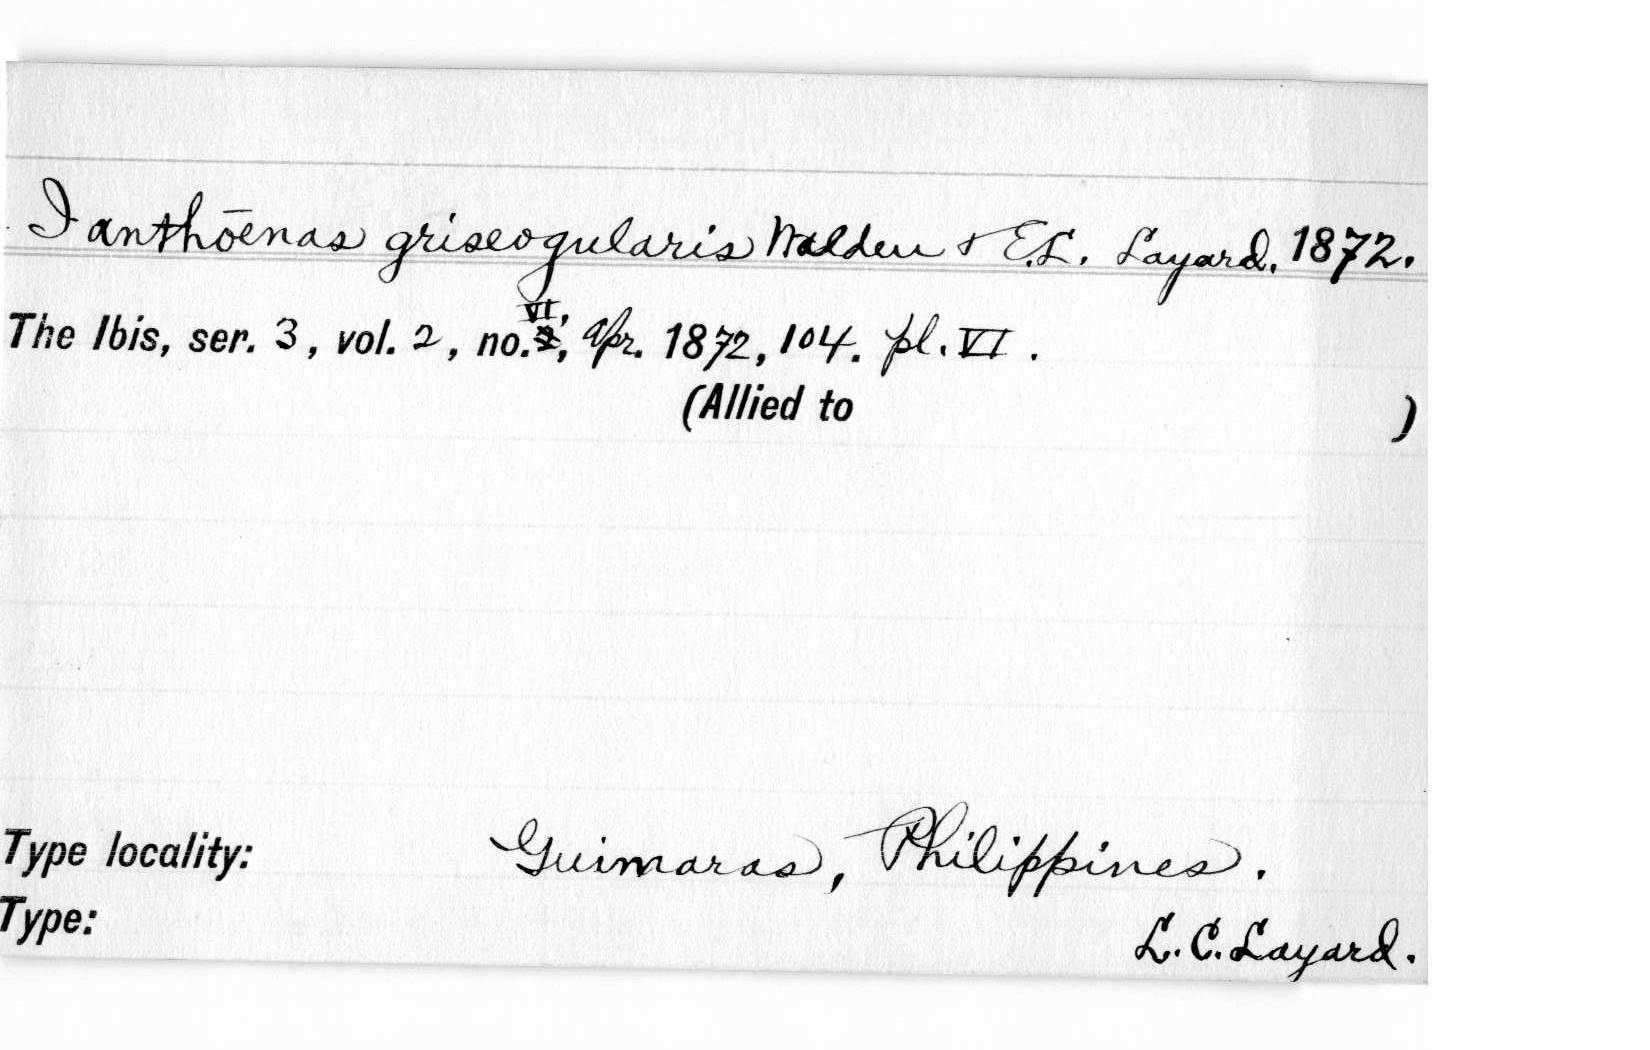 Ianthōenas griseogularis Walden & E.L. Layard. 1872.
The Ibis, ser. 3, vol. 2, no. VI, Apr. 1872, 104. pl. VI.
(Allied to )
Type locality: Guimaras, Philippines.
Type: L.C. Layard.